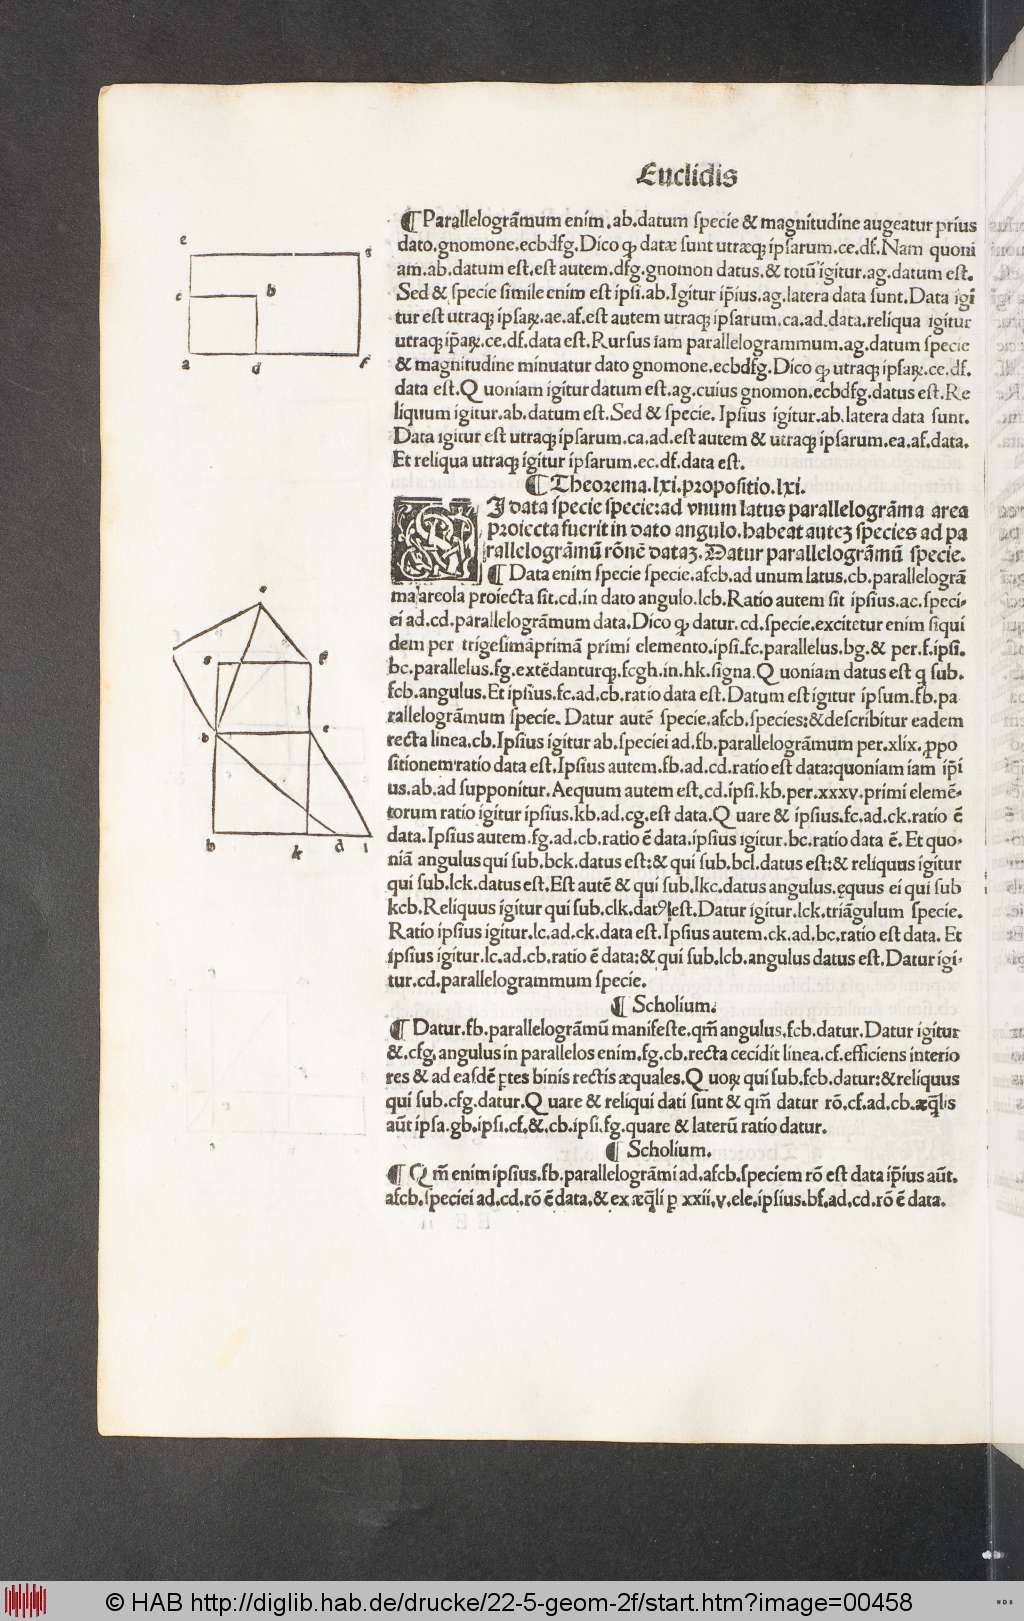 Euclidis
¶ Parallelogrãmum enim.ab.datum specie & magnitudine augeatur prius
dato.gnomone.ecbdfg.Dico ꝙ datæ sunt utræqꝫ ipsarum.ce.df.Nam quoni
am.ab.datum est.est autem.dfg.gnomon datus.& totũ igitur.ag.datum est.
Sed & specie simile enim est ipsi.ab.Igitur ip̃ius.ag.latera data sunt.Data igi
tur est utraqꝫ ipsaꝝ.ae.af.est autem utraqꝫ ipsarum.ca.ad.data.reliqua igitur
utraqꝫ ip̃aꝝ.ce.df.data est.Rursus iam parallelogrammum.ag.datum specie
& magnitudine minuatur dato gnomone.ecbdfg.Dico ꝙ utraqꝫ ipsaꝝ.ce.df.
data est.Quoniam igitur datum est.ag.cuius gnomon.ecbdfg.datus est.Re
liquum igitur.ab.datum est.Sed & specie. Ipsius igitur.ab.latera data sunt.
Data igitur est utraqꝫ ipsarum.ca.ad.est autem & utraqꝫ ipsarum.ea.af.data.
Et reliqua utraqꝫ igitur ipsarum.ec.df.data est.
¶ Theorema.lxi.propositio.lxi.
SI data specie species:ad vnum latus parallelogrãma area
proiecta fuerit in dato angulo.habeat auteꝫ species ad pa
rallelogrãmũ rõnẽ dataꝫ.Datur parallelogrãmũ specie.
¶ Data enim specie specie.afcb.ad unum latus.cb.parallelogrã
ma areola proiecta sit.cd.in dato angulo.lcb.Ratio autem sit ipsius.ac.speci-
ei ad.cd.parallelogrãmum data.Dico ꝙ datur.cd.specie.excitetur enim siqui
dem per trigesimãprimã primi elemento.ipsi.fc.parallelus.bg.& per.f.ipsi.
bc.parallelus.fg.extẽdanturqꝫ.fcgh.in.hk.signa.Quoniam datus est q̃ sub.
fcb.angulus.Et ipsius.fc.ad.cb.ratio data est.Datum est igitur ipsum.fb.pa
rallelogrãmum specie. Datur autẽ specie.afcb.species:&describitur eadem
recta linea.cb.Ipsius igitur ab.speciei ad.fb.parallelogrãmum per.xlix.ꝓpo
sitionem ratio data est.Ipsius autem.fb.ad.cd.ratio est data:quoniam iam ip̃i
us.ab.ad supponitur.Aequum autem est.cd.ipsi.kb.per.xxxv.primi elemẽ-
torum ratio igitur ipsius.kb.ad.cg.est data.Quare & ipsius.fc.ad.ck.ratio ẽ
data.Ipsius autem.fg.ad.cb.ratio ẽ data.ipsius igitur.bc.ratio data ẽ. Et quo-
niã angulus qui sub.bck.datus est:& qui sub.bcl.datus est:& reliquus igitur
qui sub.lck.datus est.Est autẽ & qui sub.lkc.datus angulus.ęquus ei qui sub
kcb.Reliquus igitur qui sub.clk.datꝰ est.Datur igitur.lck.triãgulum specie.
Ratio ipsius igitur.lc.ad.ck.data est.Ipsius autem.ck.ad.bc.ratio est data. Et
ipsius igitur.lc.ad.cb.ratio ẽ data:& qui sub.lcb.angulus datus est.Datur igi-
tur.cd.parallelogrammum specie.
¶ Scholium.
¶ Datur.fb.parallelogrãmũ manifeste.qm̃ angulus.fcb.datur.Datur igitur
&.cfg.angulus in parallelos enim.fg.cb.recta cecidit linea.cf.efficiens interio
res & ad easdẽ ptes binis rectis æquales.Quoꝝ qui sub.fcb.datur:&reliquus
qui sub.cfg.datur.Quare & reliqui dati sunt & qm̃ datur rõ.cf.ad.cb.æq̃lis
aũt ipsa.gb.ipsi.cf.&.cb.ipsi.fg.quare & laterũ ratio datur.
¶ Scholium.
¶ Qm̃ enim ipsius.fb.parallelogrãmi ad.afcb.speciem rõ est data ip̃ius aũt.
afcb.speciei ad.cd.rõ ẽ data.& ex æq̃li ꝑ xxii.v.ele.ipsius.bf.ad.cd.rõ ẽ data.
e g
c b
a d f
a
g f
b c
h k d l
© HAB http://diglib.hab.de/drucke/22-5-geom-2f/start.htm?image=00458